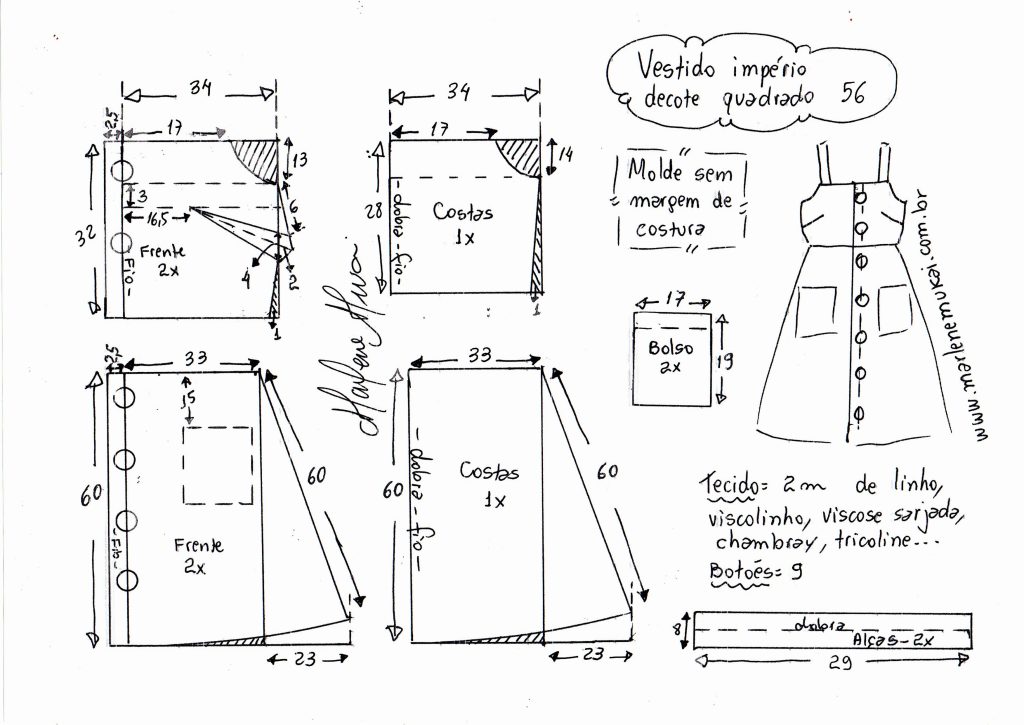 Vestido império
decote quadrado 56
34
2,5
17
13
3
16,5
6
32
Frente
2x
Fio
4
2
1
34
17
14
28
dobra - fio
Costas
1x
1
Molde sem
margem de
costura
17
Bolso
2x
19
www.marlenemukai.com.br
2,5
33
15
60
60
Frente
2x
Fio
23
33
60
dobra - fio
Costas
1x
60
23
Tecido = 2m de linho,
viscolinho, viscose sarjada,
chambray, tricoline...
Botões = 9
8
dobra
Alças - 2x
29